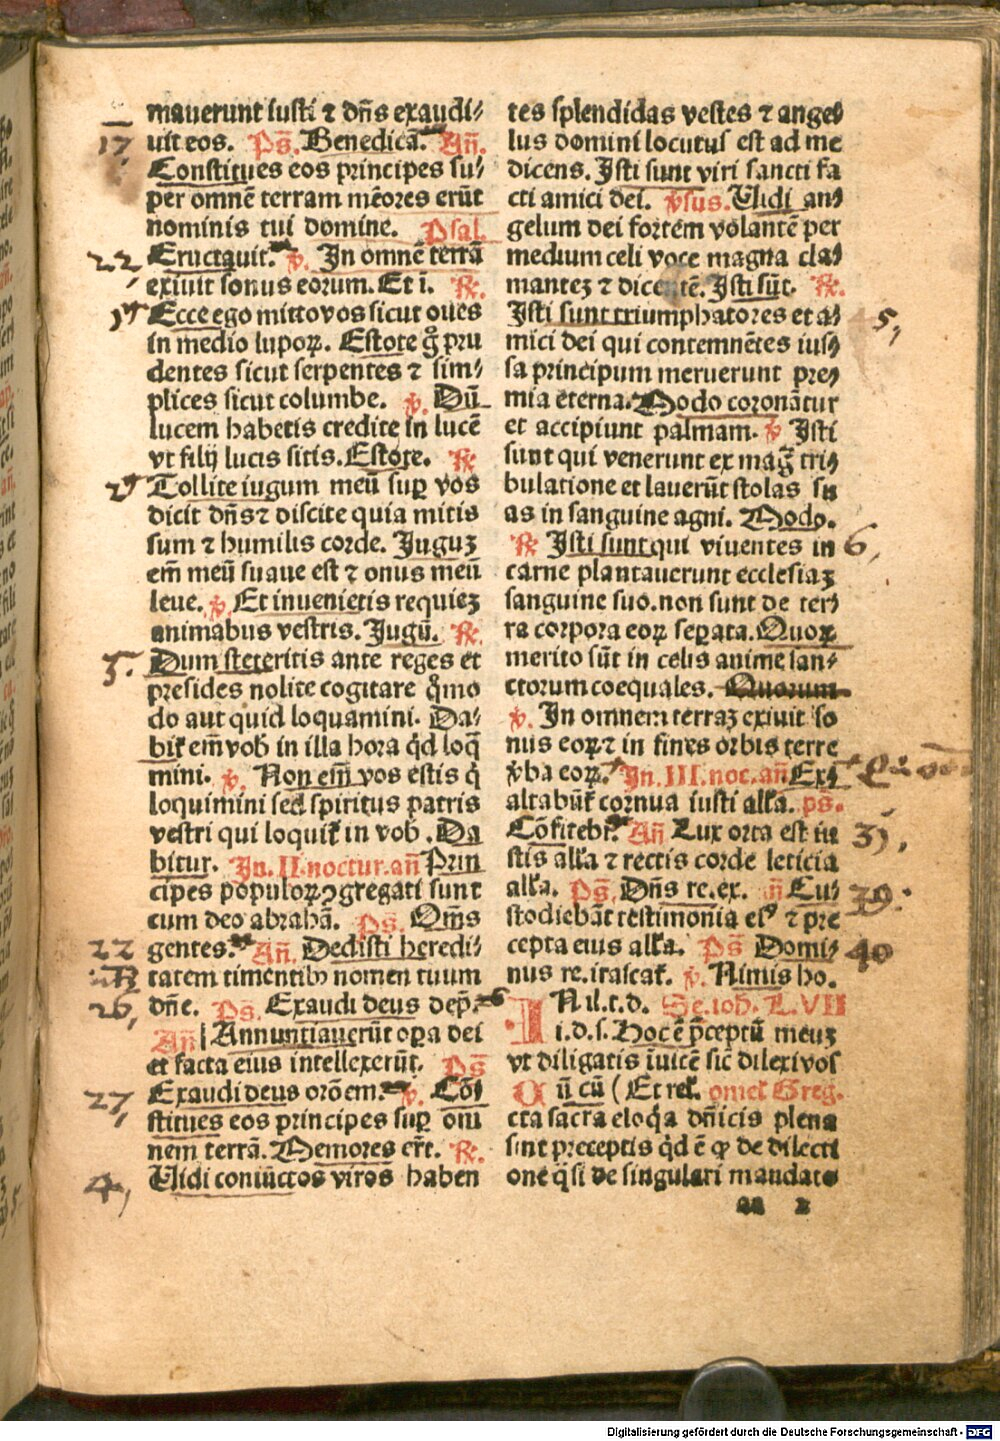 mauerunt iusti ⁊ dn̄s exaudi⸗
uit eos. Ps̄. Benedicā. An̄.
Constitues eos principes su⸗
per omnē terram mēores erūt
nominis tui domine. Psal.
Eructauit. ꝟ. In omnē terrā
exiuit sonus eorum. Et i. ℟.
Ecce ego mitto vos sicut oues
in medio lupoꝝ. Estote g̊ pru
dentes sicut serpentes ⁊ sim⸗
plices sicut columbe. ꝟ. Dū
lucem habetis credite in lucē
vt filij lucis sitis. Estote. ℟
Tollite iugum meū suꝑ vos
dicit dn̄s ⁊ discite quia mitis
sum ⁊ humilis corde. Juguꝫ
em̄ meū suaue est ⁊ onus meū
leue. ꝟ. Et inuenietis requieꝫ
animabus vestris. Jugū. ℟.
Dum steteritis ante reges et
presides nolite cogitare q̊mo
do aut quid loquamini. Da⸗
bit᷑ em̄ vob̄ in illa hora qd̄ loq̄
mini. ꝟ. Non em̄ vos estis q̇
loquimini sed spiritus patris
vestri qui loquit᷑ in vob̄. Da
bitur. In. II. noctur. an̄ Prin
cipes populoꝝ ꝯgregati sunt
cum deo abrahā. Ps̄. Om̄s
gentes. An̄. Dedisti heredi⸗
tatem timentibꝰ nomen tuum
dn̄e. Ps̄. Exaudi deus dep̄.
An̄ Annunciauerūt oꝑa dei
et facta eius intellexerūt. Ps̄
Exaudi deus orōem. ꝟ. Cō⸗
stitues eos principes suꝑ om̄
nem terrā. Memores er̄t. ℟.
Uidi coniūctos viros haben
17
22
1
2
3.
22
26,
27,
4,
tes splendidas vestes ⁊ ange⸗
lus domini locutus est ad me
dicens. Isti sunt viri sancti fa
cti amici dei. ꝟsus. Uidi an⸗
gelum dei fortem volantē per
medium celi voce magna cla⸗
manteꝫ ⁊ dicentē. Isti sūt. ℟.
Isti sunt triumphatores et a⸗
mici dei qui contemnētes ius⸗
sa principum meruerunt pre⸗
mia eterna. Modo coronātur
et accipiunt palmam. ꝟ Isti
sunt qui venerunt ex maḡ tri⸗
bulatione et lauerūt stolas su
as in sanguine agni. Modo.
℟ Isti sunt qui viuentes in
carne plantauerunt ecclesiaꝫ
sanguine suo. non sunt de ter⸗
ra corpora eoꝝ seꝑata. Quoꝝ
merito sūt in celis anime san⸗
ctorum coequales. Quorum
ꝟ. In omnem terraꝫ exiuit so
nus eoꝝ ⁊ in fines orbis terre
ꝟba eoꝝ. In. III. noc. an̄ Ex⸗
altabūt᷑ cornua iusti all'a. ps̄.
Cōfitebi᷑. An̄ Lux orta est iu
stis all'a ⁊ rectis corde leticia
all'a. Ps̄. Dn̄s re. ex. an̄ Cu⸗
stodiebāt testimonia eiꝰ ⁊ pre
cepta eius all'a. Ps̄ Domi⸗
nus re. irascat᷑. ꝟ. Nimis ho.
IN il. t. d. Se. ioh. L. VII
i. d. s. Hoc ē p̄ceptū meuꝫ
vt diligatis īuicē sic̄ dilexi vos
Cūi cū ( Et rel'. omel' Greg.
cta sacra eloq̇a dn̄icis plena
sint preceptis qd̄ ē ꝙ de dilecti
one q̇si de singulari mandato
aa 2
5,
6,
31,
39.
40